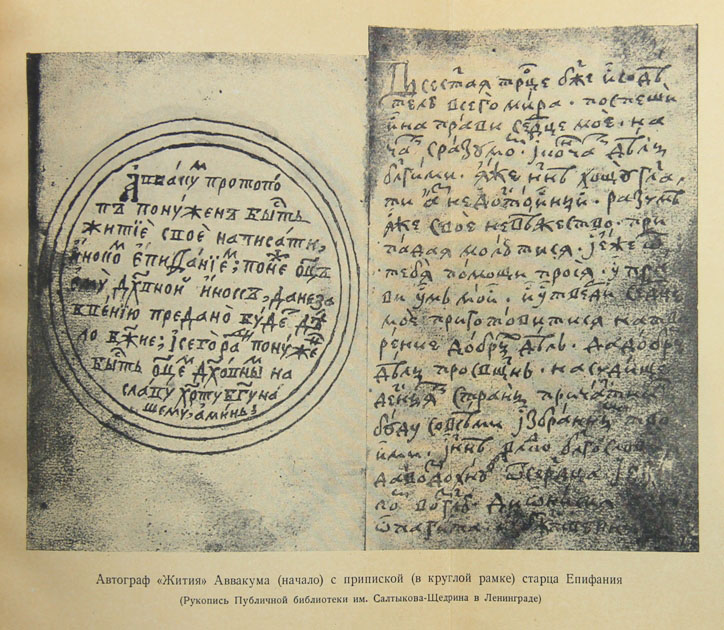 Авваку́м протопо
пъ понуженъ бы́ть
житие́ своѐ написа́ти,
и́нокомъ Епифа́ниемъ; поне́ж оц҃ъ
ему̀ дх҃о́вной инокъ, да не за
бве́нию предано бу́детъ дѣ́
ло бж҃ие; и сего̀ ра́ди пону́женъ
бы́ть оц҃е́мъ дх҃о́внымъ на
сла́ву хр҃ту̀ бг҃у на
шему; ами́нь
Всест҃ая трⷪ҇це бж҃е и содѣ
тель всего ми́ра. поспеши
и направи се́рдце моѐ. на
ча́ти с ра́зумомъ. и конча́ти дѣ́лы
бл҃ги́ми. я́же нн҃ѣ хощу̀ гл҃а
ти а́зъ недосто́йный. разумѣ́я
же своѐ невѣ́жество. при
па́дая молю́ ти ся. и е́же ѿ
тебя̀ помощи прося. упра
ви у́мъ мо́й. и утверди се́рдце
моѐ приготовитися на тво
ре́ние до́брыхъ дѣ́лъ. да до́брыми
дѣлы просвѣще́нъ. на судище
десныя ти страны̀ прича́стникъ
бу́ду со всѣ́ми избра́нными тво
и́ми. и нн҃ѣ влⷣко благословѝ
да воздохну́въ ѿ се́рдца и язы́
комъ возгл҃ю. дионисия
Автограф «Жития» Аввакума (начало) с припиской (в круглой рамке) старца Епифания
(Рукопись Публичной библиотеки им. Салтыкова-Щедрина в Ленинграде)